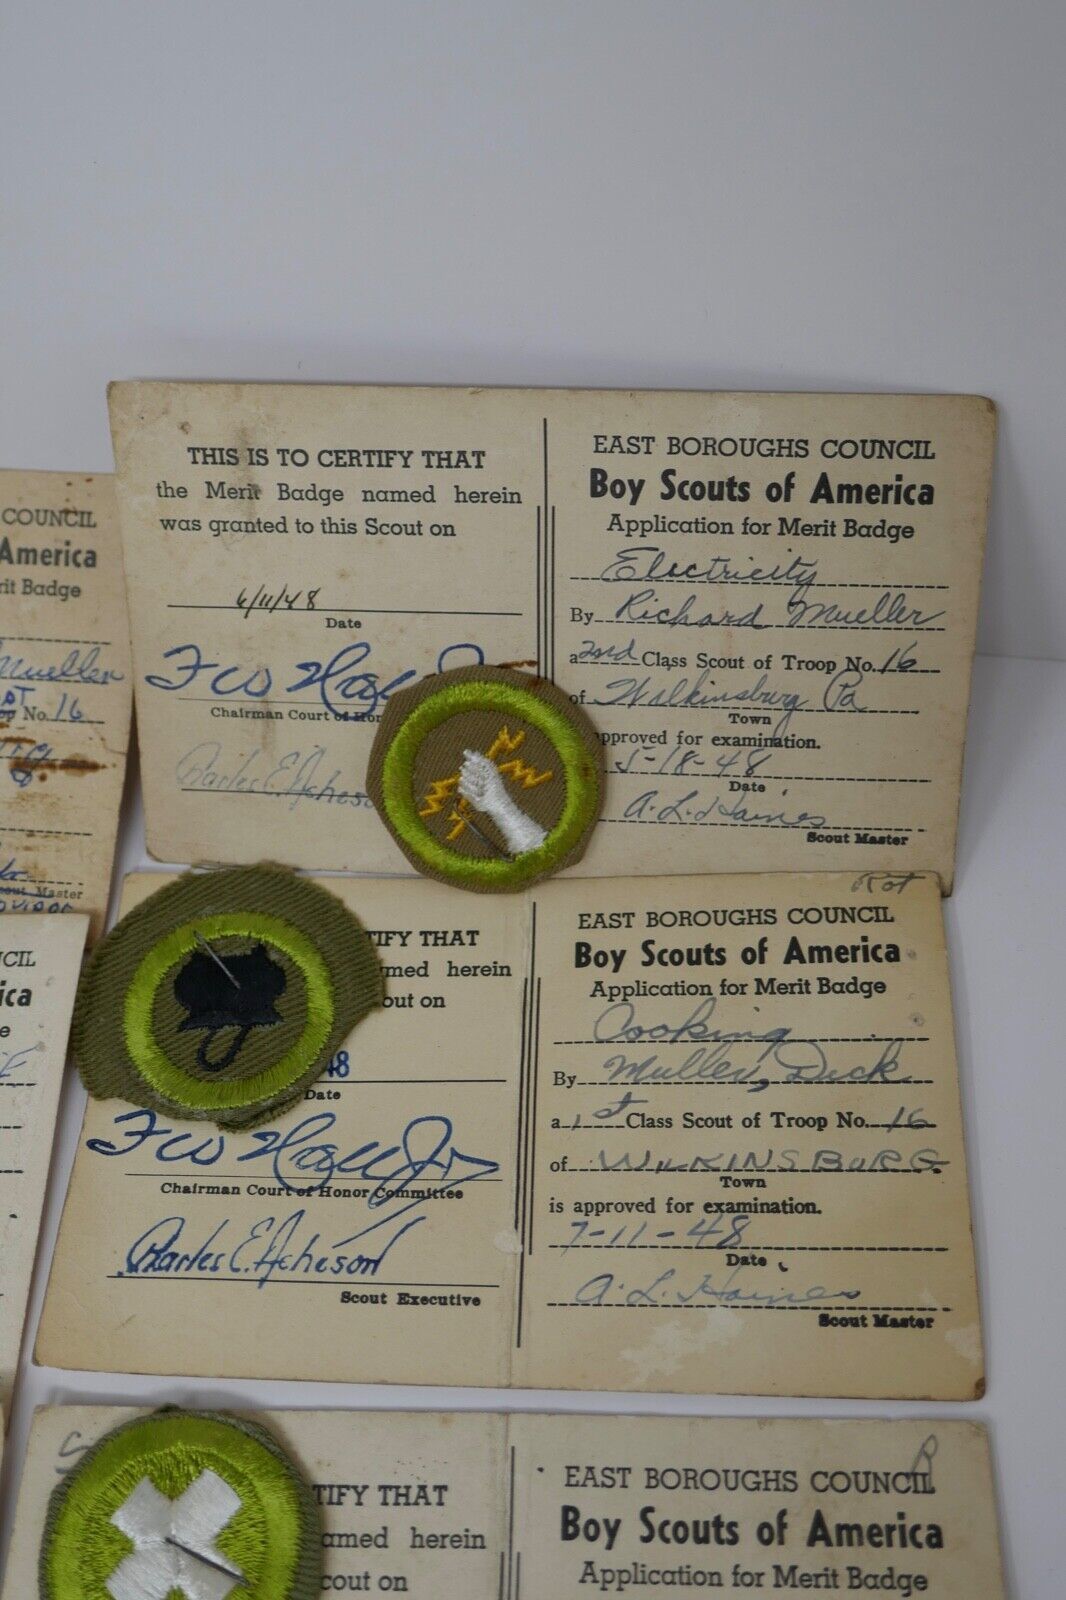 THIS IS TO CERTIFY THAT
the Merit Badge named herein
was granted to this Scout on
6/11/48
Date
Chairman Court of Hon
Charles E. Acheso
EAST BOROUGHS COUNCIL
Boy Scouts of America
Application for Merit Badge
Electricity
By Richard Mueller
a 2nd Class Scout of Troop No. 16
of Wilkinsburg Pa
Town
approved for examination.
5-18-48
Date
A. L. Haines
Scout Master
COUNCIL
America
rit Badge
Mueller
No. 16
Scout Master
CIL
ica
e
TIFY THAT
med herein
out on
48
Date
Chairman Court of Honor Committee
Charles E. Acheson
Scout Executive
Rot
EAST BOROUGHS COUNCIL
Boy Scouts of America
Application for Merit Badge
Cooking
By Muller, Dick
a 1st Class Scout of Troop No. 16
of WILKINSBURG
Town
is approved for examination.
7-11-48
Date
A. L. Haines
Scout Master
TIFY THAT
amed herein
cout on
R
EAST BOROUGHS COUNCIL
Boy Scouts of America
Application for Merit Badge